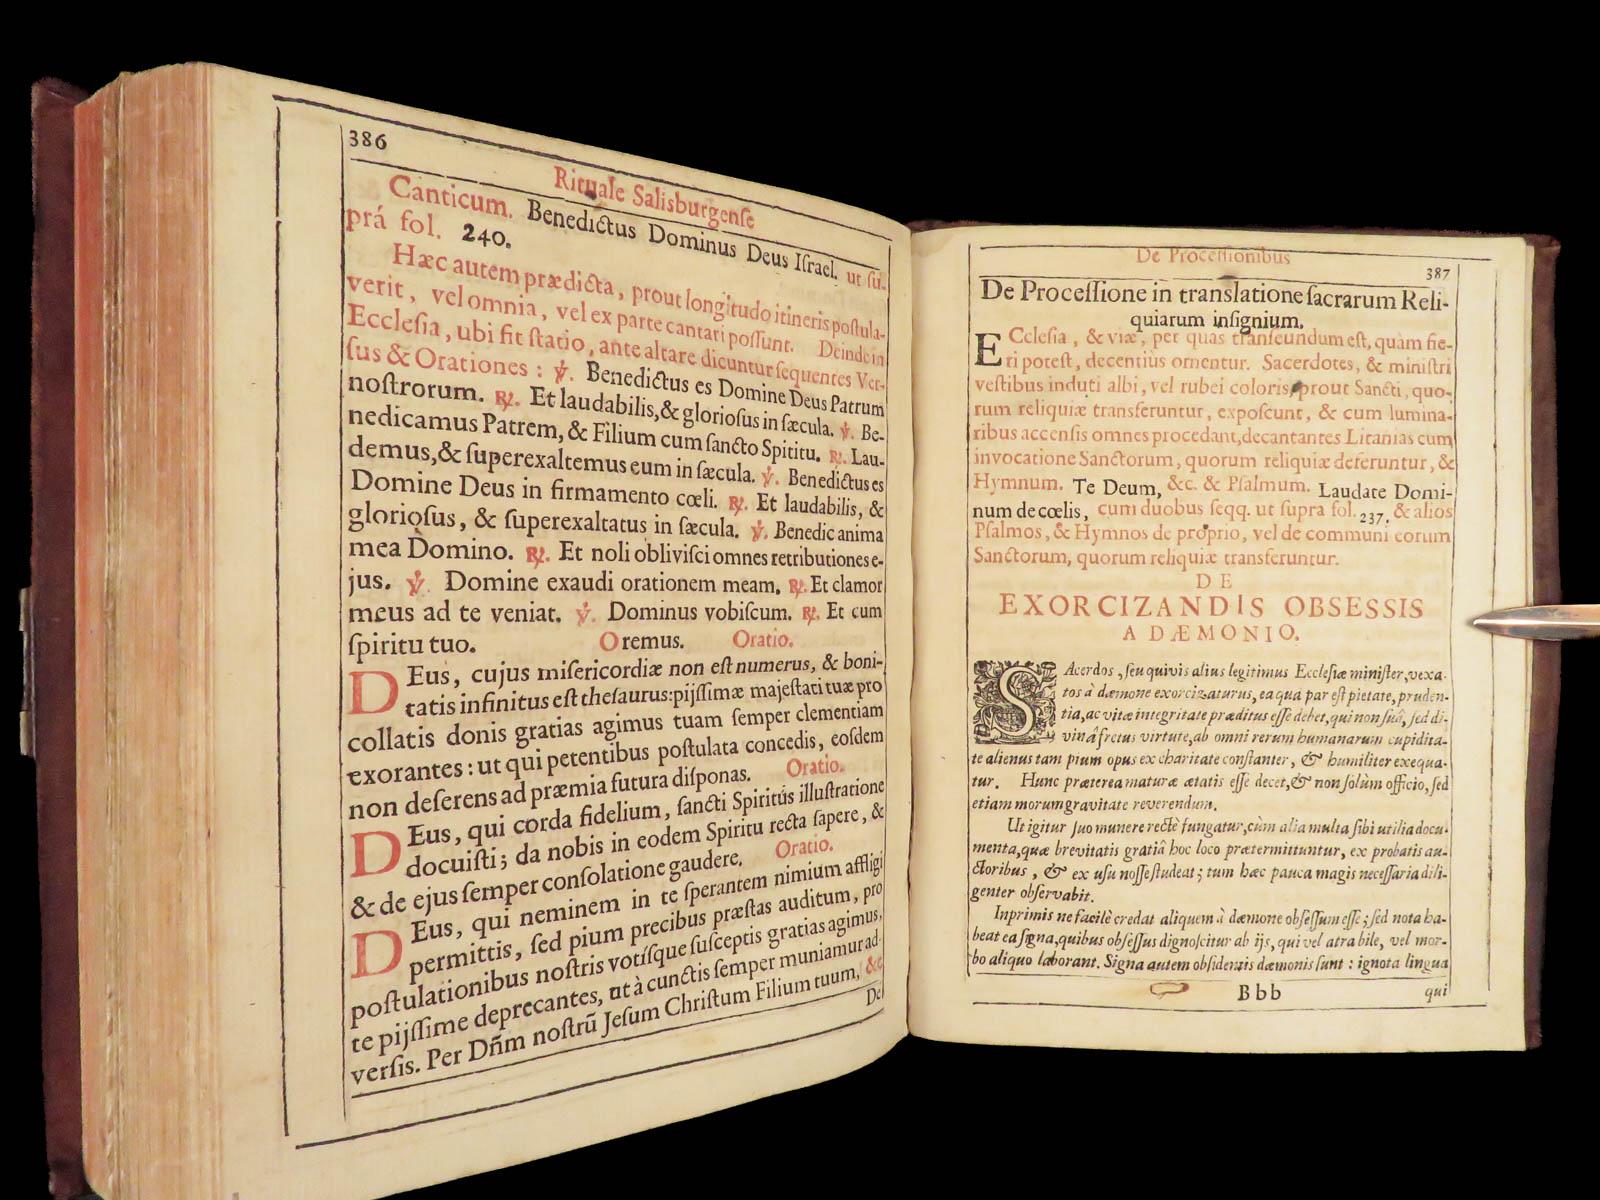 386
Rituale Salisburgenſe
Canticum. Benedictus Dominus Deus Iſrael. ut ſu-
prá fol. 240.
Hæc autem prædicta, prout longitudo itineris poſtula-
verit, vel omnia, vel ex parte cantari poſſunt. Deinde in
Eccleſia, ubi fit ſtatio, ante altare dicuntur ſequentes Ver-
ſus & Orationes : ℣. Benedictus es Domine Deus Patrum
noſtrorum. ℟. Et laudabilis, & glorioſus in ſæcula. ℣. Be-
nedicamus Patrem, & Filium cum ſancto Spititu. ℟. Lau-
demus, & ſuperexaltemus eum in ſæcula. ℣. Benedictus es
Domine Deus in firmamento cœli. ℟. Et laudabilis, &
glorioſus, & ſuperexaltatus in ſæcula. ℣. Benedic anima
mea Domino. ℟. Et noli obliviſci omnes retributiones e-
jus. ℣. Domine exaudi orationem meam. ℟. Et clamor
meus ad te veniat. ℣. Dominus vobiſcum. ℟. Et cum
ſpiritu tuo. Oremus. Oratio.
DEus, cujus miſericordiæ non eſt numerus, & boni-
tatis infinitus eſt theſaurus: pijſſimæ majeſtati tuæ pro
collatis donis gratias agimus tuam ſemper clementiam
exorantes : ut qui petentibus poſtulata concedis, eoſdem
non deferens ad præmia futura diſponas. Oratio.
DEus, qui corda fidelium, ſancti Spiritus illuſtratione
docuiſti; da nobis in eodem Spiritu recta ſapere, &
& de ejus ſemper conſolatione gaudere. Oratio.
DEus, qui neminem in te ſperantem nimium affligi
permittis, ſed pium precibus præſtas auditum, pro
poſtulationibus noſtris votiſque ſuſceptis gratias agimus,
te pijſſime deprecantes, ut à cunctis ſemper muniamur ad-
verſis. Per Dñm noſtrũ Jeſum Chriſtum Filium tuum, &c
De
De Proceſſionibus
387
De Proceſſione in translatione ſacrarum Reli-
quiarum inſignium.
ECcleſia, & viæ, per quas tranſeundum eſt, quàm fie-
ri poteſt, decentiùs ornentur. Sacerdotes, & miniſtri
veſtibus induti albi, vel rubei coloris, prout Sancti, quo-
rum reliquiæ transferuntur, expoſcunt, & cum lumina-
ribus accenſis omnes procedant, decantantes Litanias cum
invocatione Sanctorum, quorum reliquiæ deferuntur, &
Hymnum. Te Deum, &c. & Pſalmum. Laudate Domi-
num de cœlis, cum duobus ſeqq. ut ſupra fol. 237. & alios
Pſalmos, & Hymnos de proprio, vel de communi eorum
Sanctorum, quorum reliquiæ transferuntur.
DE
EXORCIZANDIS OBSESSIS
A DÆMONIO.
SAcerdos, ſeu quivis alius legitimus Eccleſiæ miniſter, vexa-
tos à dæmone exorcizaturus, ea qua par eſt pietate, pruden-
tia, ac vitæ integritate præditus eſſe debet, qui non ſuâ, ſed di-
vinâ fretus virtute, ab omni rerum humanarum cupidita-
te alienus tam pium opus ex charitate conſtanter, & humiliter exequa-
tur. Hunc præterea maturæ ætatis eſſe decet, & non ſolùm officio, ſed
etiam morum gravitate reverendum.
Ut igitur ſuo munere rectè fungatur, cùm alia multa ſibi utilia docu-
menta, quæ brevitatis gratiâ hoc loco prætermittuntur, ex probatis au-
ctoribus, & ex uſu noſſe ſtudeat; tum hæc pauca magis neceſſaria dili-
genter obſervabit.
Inprimis ne facilè credat aliquem à dæmone obſeſſum eſſe; ſed nota ha-
beat ea ſigna, quibus obſeſſus dignoſcitur ab ijs, qui vel atra bile, vel mor-
bo aliquo laborant. Signa autem obſidentis dæmonis ſunt : ignota lingua
Bbb
qui